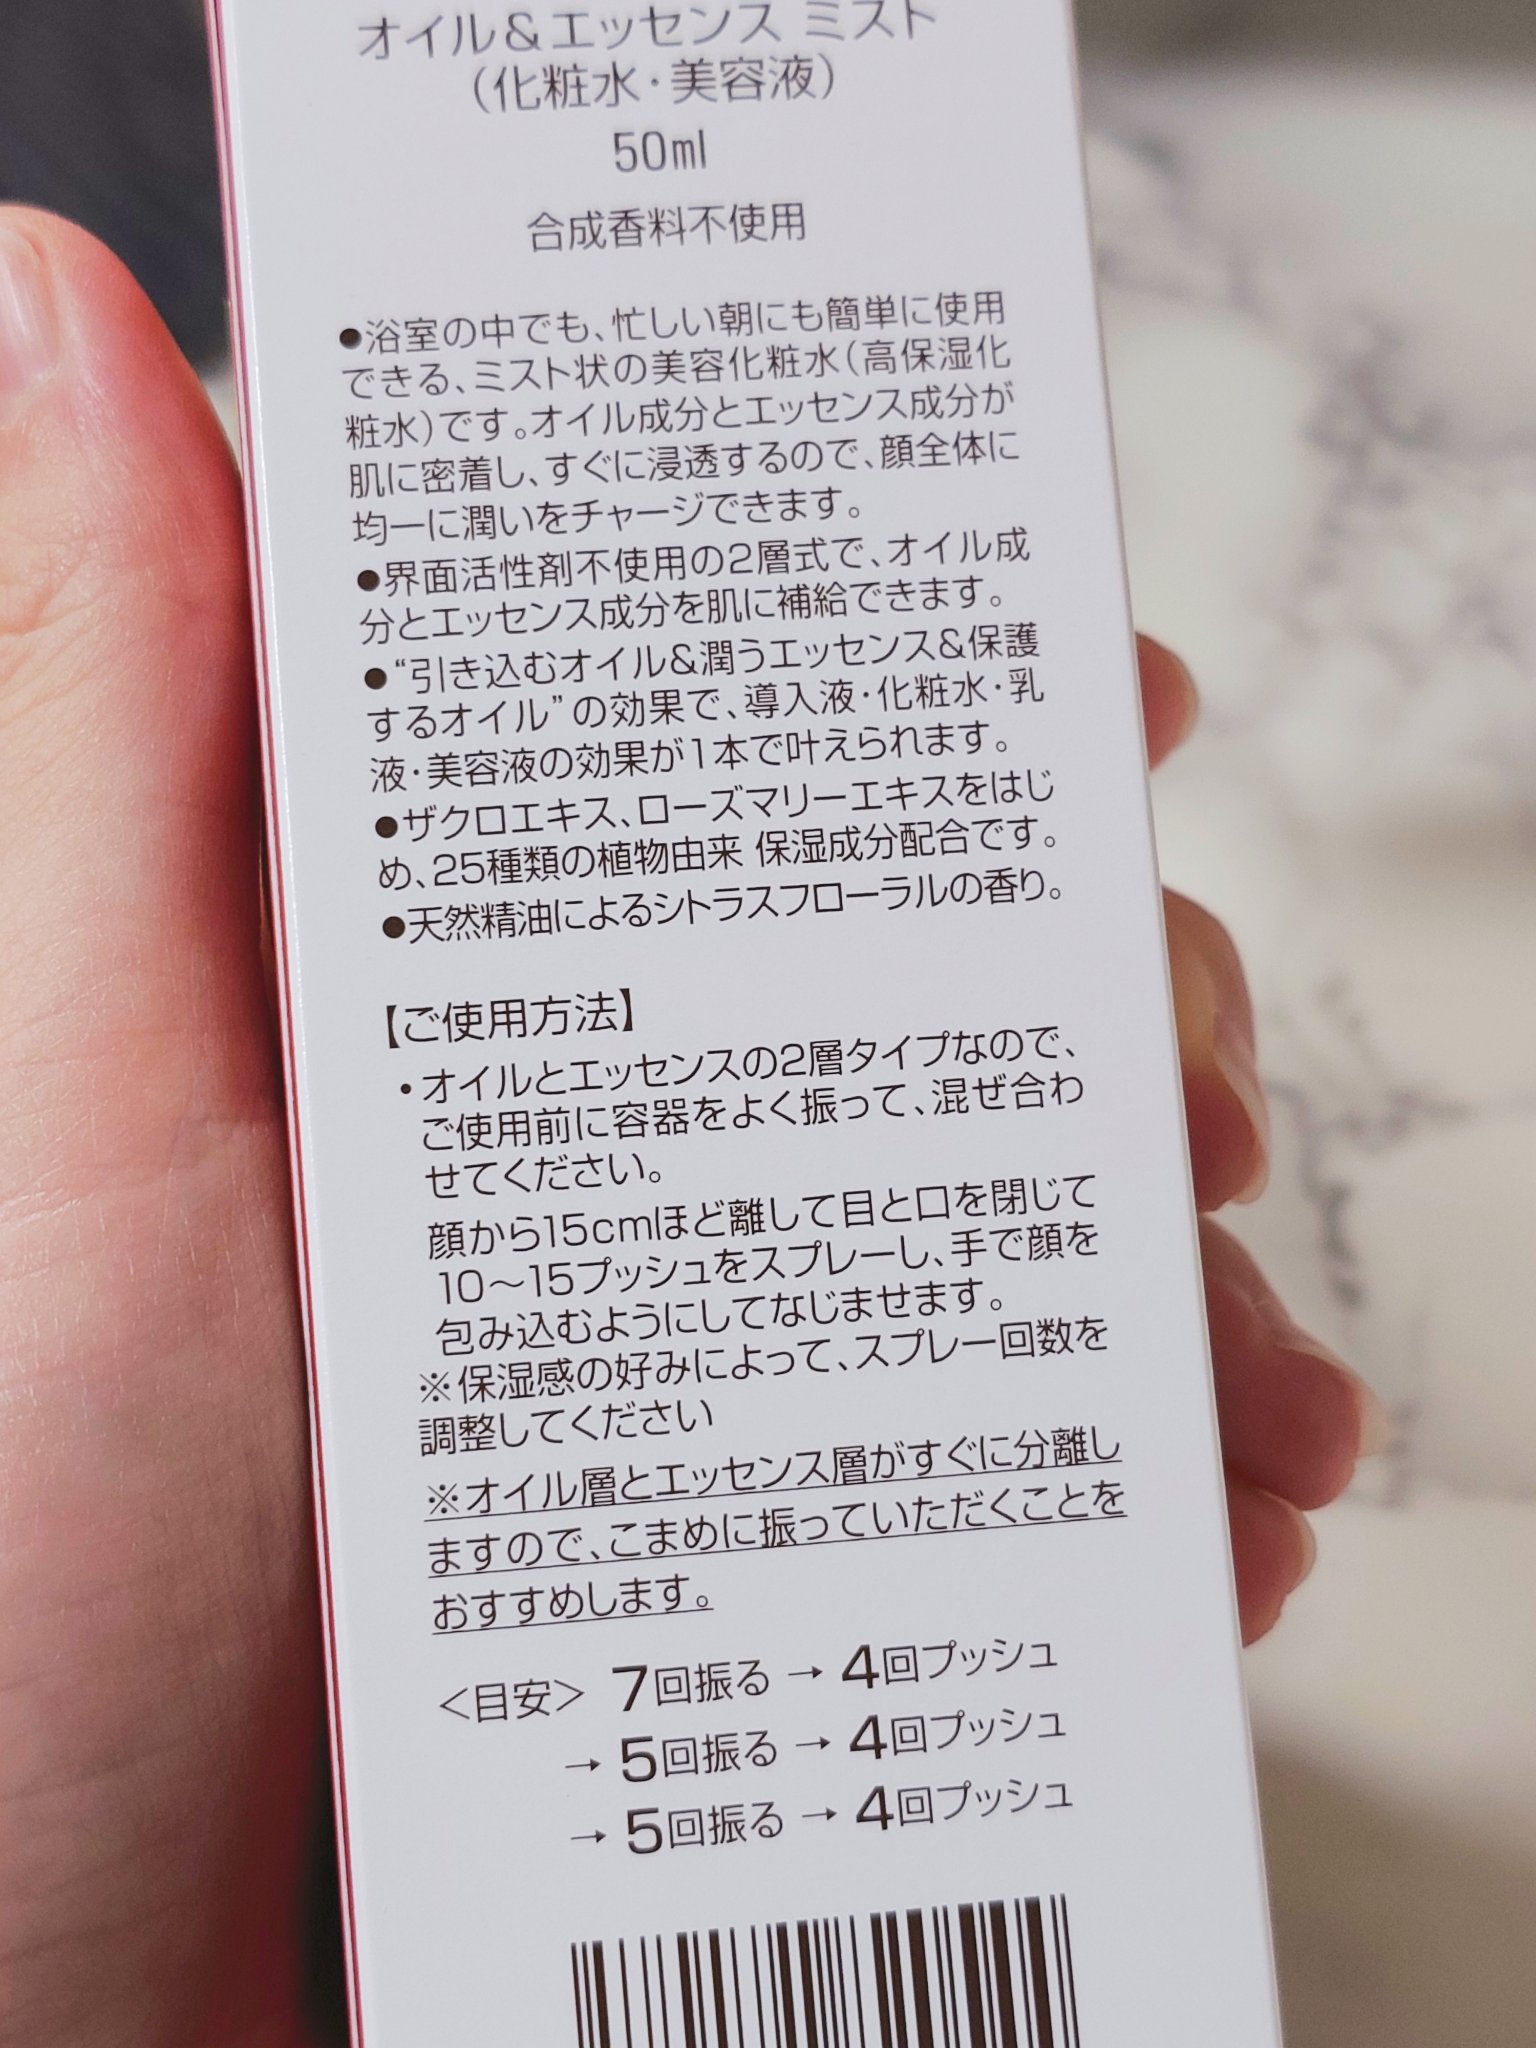 オイル&エッセンス ミスト
(化粧水・美容液)
50ml
合成香料不使用
●浴室の中でも、忙しい朝にも簡単に使用
できる、ミスト状の美容化粧水(高保湿化
粧水)です。オイル成分とエッセンス成分が
肌に密着し、すぐに浸透するので、顔全体に
均一に潤いをチャージできます。
●界面活性剤不使用の2層式で、オイル成
分とエッセンス成分を肌に補給できます。
●“引き込むオイル&潤うエッセンス&保護
するオイル”の効果で、導入液・化粧水・乳
液・美容液の効果が1本で叶えられます。
●ザクロエキス、ローズマリーエキスをはじ
め、25種類の植物由来 保湿成分配合です。
●天然精油によるシトラスフローラルの香り。
【ご使用方法】
・オイルとエッセンスの2層タイプなので、
ご使用前に容器をよく振って、混ぜ合わ
せてください。
顔から15cmほど離して目と口を閉じて
10〜15プッシュをスプレーし、手で顔を
包み込むようにしてなじませます。
※保湿感の好みによって、スプレー回数を
調整してください
※オイル層とエッセンス層がすぐに分離し
ますので、こまめに振っていただくことを
おすすめします。
<目安> 7回振る → 4回プッシュ
→ 5回振る → 4回プッシュ
→ 5回振る → 4回プッシュ